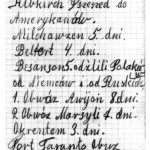 Altkirch Przeszed do
Amerykanów.
Milchawzen 5. dni.
Belfort 4. dni.
Besanson 5. odzilili Polaków
od Niemców i od Ruskich
1. Obwóz Awijon 8 dni.
2. Obwóz Marsyli 4. dni.
Okrentem 3. dni.
Port Taranto Obuz